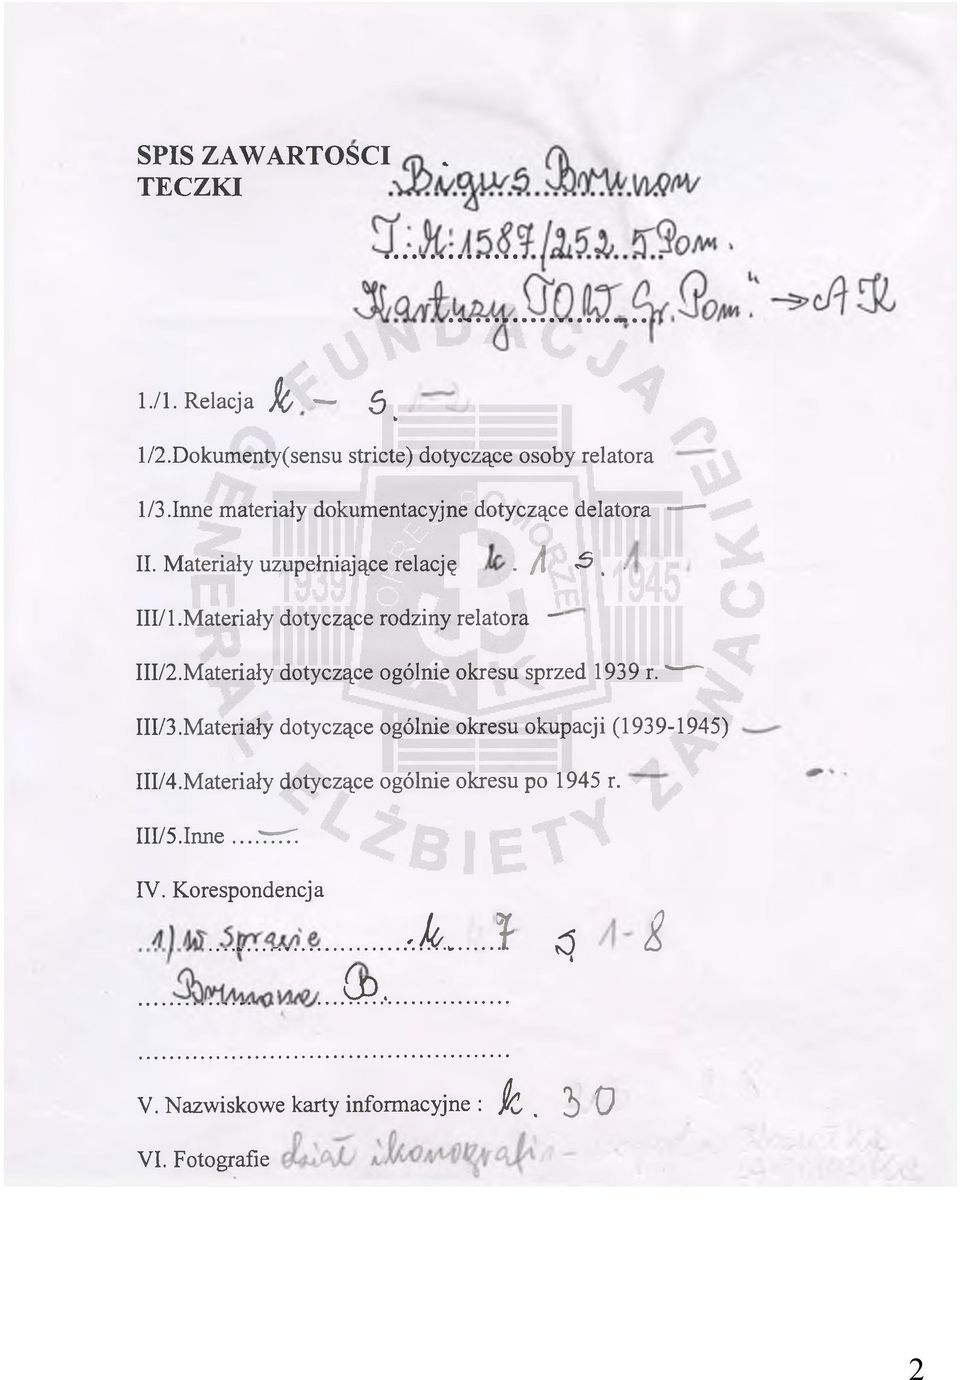 SPIS ZAWARTOŚCI
TECZKI Bigus Brunon
T: M: 1587/252 Pom.
Kartuzy TOW „Gr. Pom." → AK
1./1. Relacja k. — s. —
1/2.Dokumenty(sensu stricte) dotyczące osoby relatora —
1/3.Inne materiały dokumentacyjne dotyczące delatora —
II. Materiały uzupełniające relację k. 1 s. 1
III/1.Materiały dotyczące rodziny relatora —
III/2.Materiały dotyczące ogólnie okresu sprzed 1939 r. —
III/3.Materiały dotyczące ogólnie okresu okupacji (1939-1945) —
III/4.Materiały dotyczące ogólnie okresu po 1945 r. —
III/5.Inne ....—....
IV. Korespondencja
1) w sprawie k. 7 s. 1-8
Brunona B.
V. Nazwiskowe karty informacyjne : k. 30
VI. Fotografie dział ikonografii -
FUNDACJA
GENERAŁ ELŻBIETY ZAWACKIEJ
OKRĘG POMORZE
1939 1945
AK
2